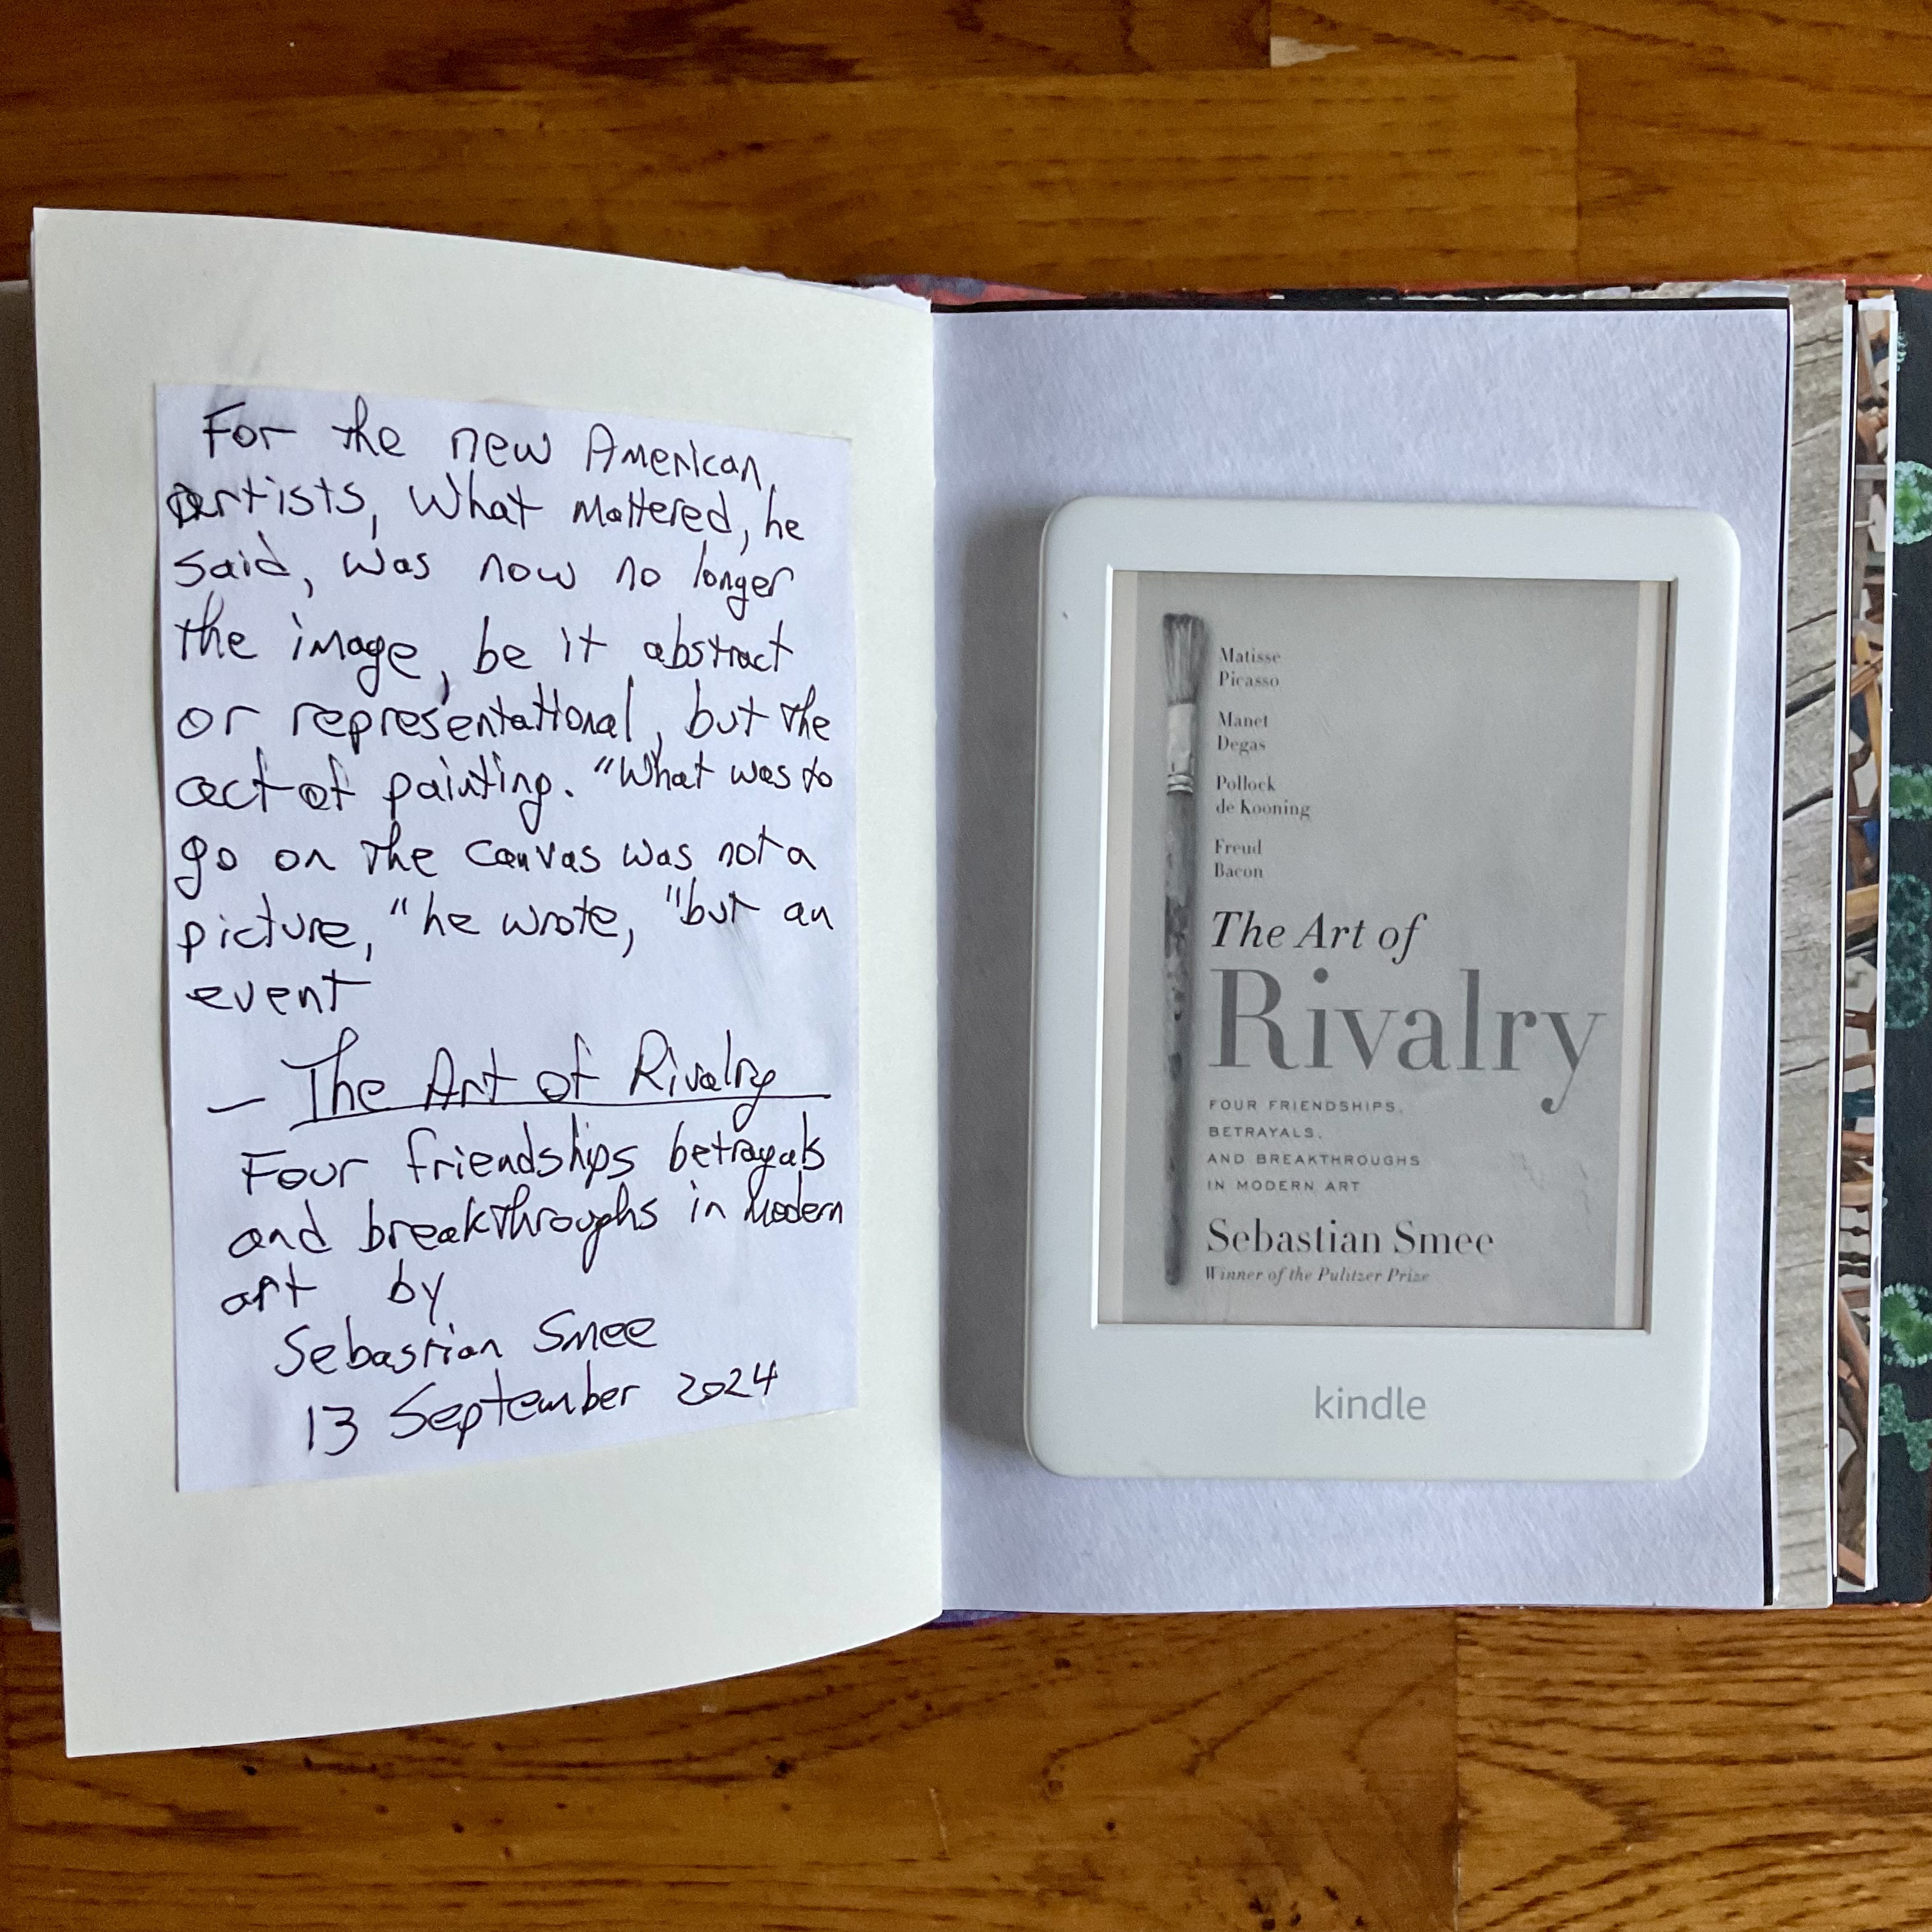 For the new American
artists, What mattered, he
said, was now no longer
the image, be it abstract
or representational, but the
act of painting. "What was to
go on the canvas was not a
picture, "he wrote, "but an
event
— The Art of Rivalry
Four friendships betrayals
and breakthroughs in Modern
art by
Sebastian Smee
13 September 2024
Matisse
Picasso
Manet
Degas
Pollock
de Kooning
Freud
Bacon
The Art of
Rivalry
FOUR FRIENDSHIPS,
BETRAYALS,
AND BREAKTHROUGHS
IN MODERN ART
Sebastian Smee
Winner of the Pulitzer Prize
kindle